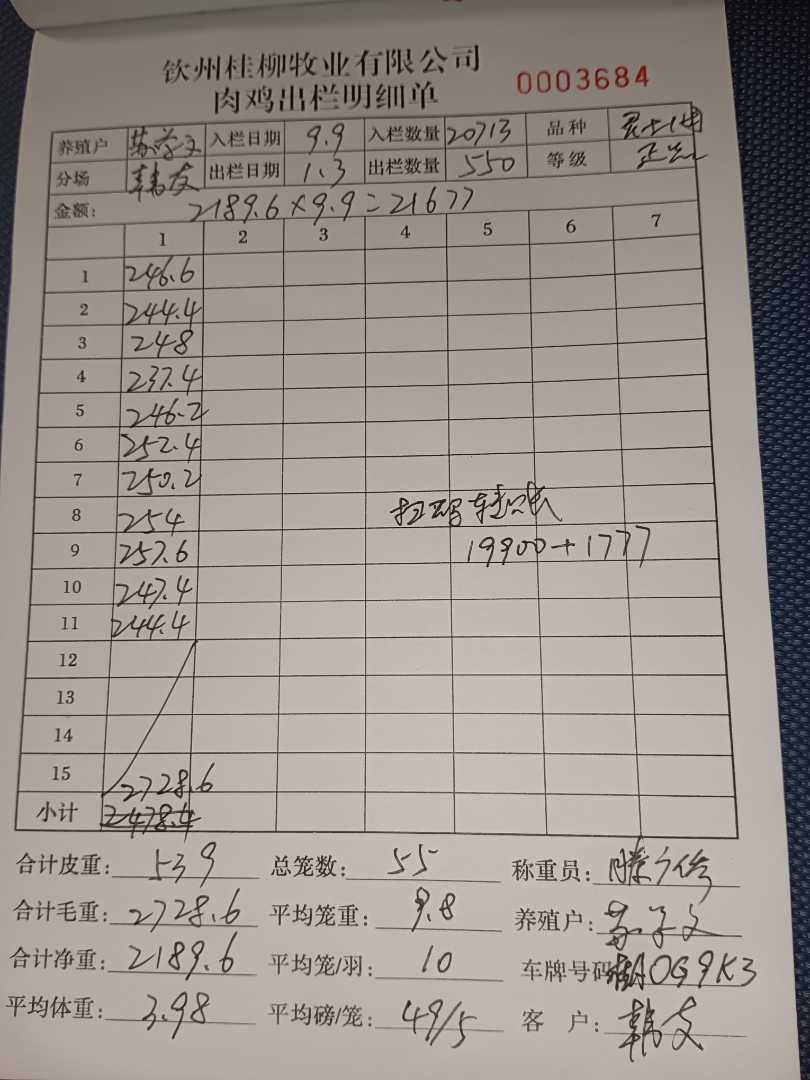 钦州桂柳牧业有限公司
0003684
肉鸡出栏明细单
养殖户 入栏日期 9.9 入栏数量 20713 品种
分场 韩友 出栏日期 1.3 出栏数量 550 等级
金额: 2189.6×9.9=21677
1 2 3 4 5 6 7
1 246.6
2 244.4
3 248
4 237.4
5 246.2
6 252.4
7 250.2
8 254 扫码转账
9 257.6 19900+1777
10 247.4
11 244.4
12
13
14
15 2728.6
小计 2478.4
合计皮重: 539 总笼数: 55 称重员:
合计毛重: 2728.6 平均笼重: 9.8 养殖户:
合计净重: 2189.6 平均笼/羽: 10 车牌号码: 0G9K3
平均体重: 3.98 平均磅/笼: 49/5 客户: 韩友